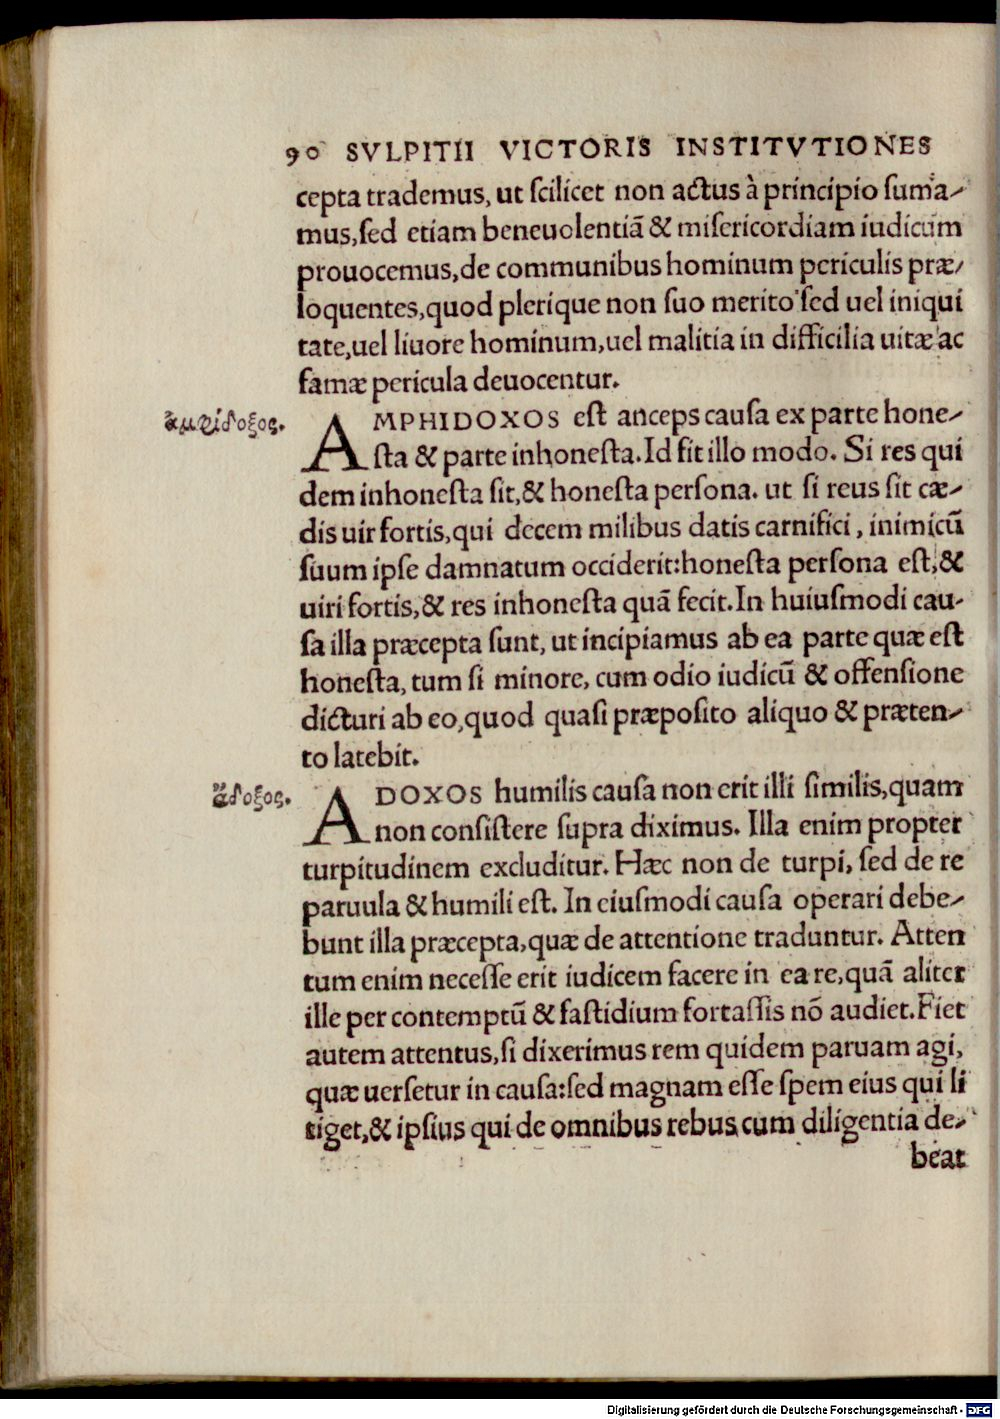 90 SVLPITII VICTORIS INSTITVTIONES
cepta trademus, ut scilicet non actus à principio suma-
mus, sed etiam beneuolentiā & misericordiam iudicum
prouocemus, de communibus hominum periculis præ-
loquentes, quod plerique non suo merito sed uel iniqui
tate, uel liuore hominum, uel malitia in difficilia uitæ ac
famæ pericula deuocentur.
ἀμφίδοξος.
AMPHIDOXOS est anceps causa ex parte hone-
sta & parte inhonesta. Id fit illo modo. Si res qui
dem inhonesta sit, & honesta persona. ut si reus sit cæ-
dis uir fortis, qui decem milibus datis carnifici, inimicū
suum ipse damnatum occiderit: honesta persona est, &
uiri fortis, & res inhonesta quā fecit. In huiusmodi cau-
sa illa præcepta sunt, ut incipiamus ab ea parte quæ est
honesta, tum si minore, cum odio iudicū & offensione
dicturi ab eo, quod quasi præposito aliquo & præten-
to latebit.
ἄδοξος.
ADOXOS humilis causa non erit illi similis, quam
non consistere supra diximus. Illa enim propter
turpitudinem excluditur. Hæc non de turpi, sed de re
paruula & humili est. In eiusmodi causa operari debe-
bunt illa præcepta, quæ de attentione traduntur. Atten
tum enim necesse erit iudicem facere in ea re, quā aliter
ille per contemptū & fastidium fortassis nō audiet. Fiet
autem attentus, si dixerimus rem quidem paruam agi,
quæ uersetur in causa: sed magnam esse spem eius qui li
tiget, & ipsius qui de omnibus rebus cum diligentia de-
beat
Digitalisierung gefördert durch die Deutsche Forschungsgemeinschaft - DFG